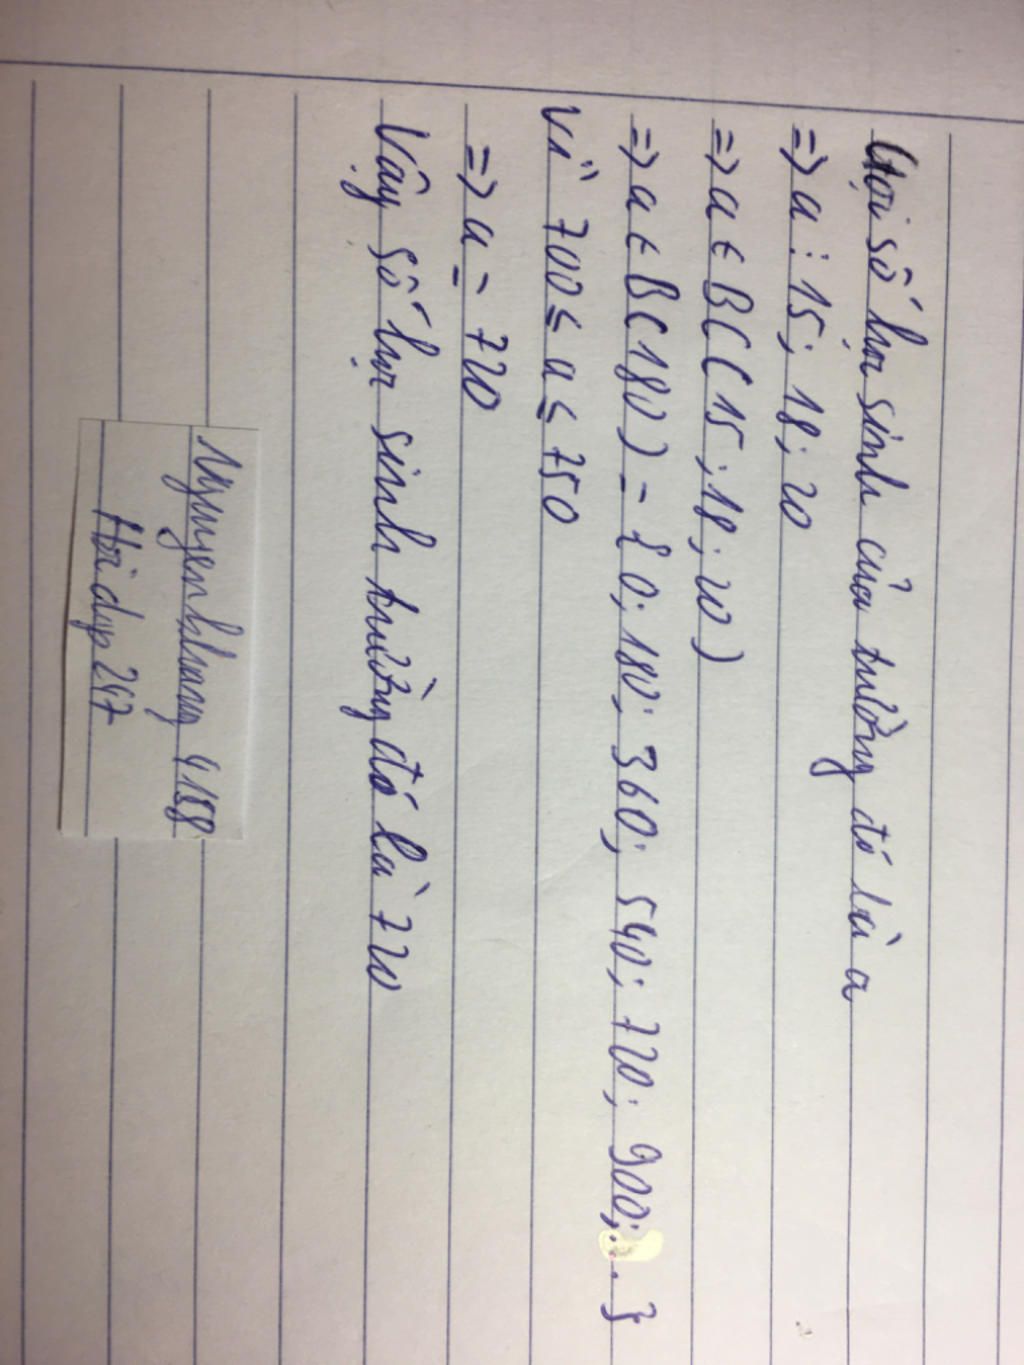 Gọi số học sinh của trường đó là a
=> a ⋮ 15; 18; 20
=> a ∈ BC (15; 18; 20)
=> a ∈ B(180) = {0; 180; 360; 540; 720; 900;...}
vì 700 ≤ a ≤ 750
=> a = 720
Vậy số học sinh trường đó là 720
4158
Hoidap247